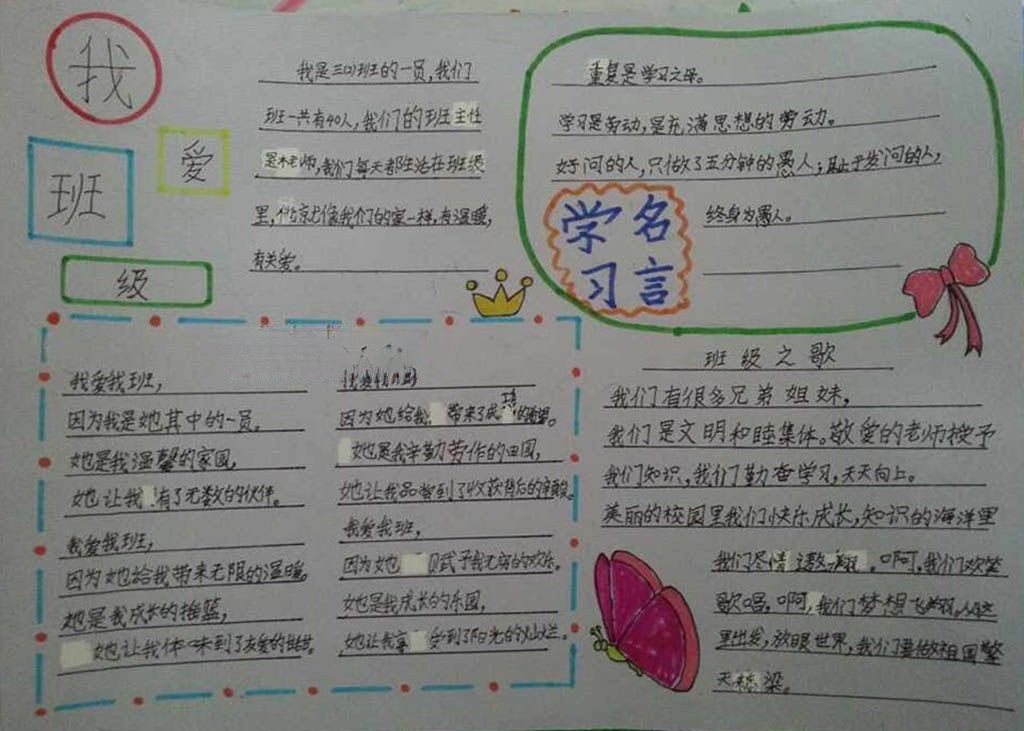 我
爱
班
级
我是三(2)班的一员,我们
班一共有40人,我们的班主任
是林老师,我们每天都生活在班级
里,他就像我们的家一样,有温暖,
有关爱。
重复是学习之母。
学习是劳动,是充满思想的劳动。
好问的人,只做了五分钟的愚人;耻于发问的人,
终身为愚人。
学习
名言
我爱我班,
因为我是她其中的一员。
她是我温馨的家园,
她让我有了无数的伙伴。
我爱我班,
因为她给我带来无限的温暖。
她是我成长的摇篮,
她让我体味到了友爱的甜甜
因为她给我带来了成功的希望。
她是我辛勤劳作的田园,
她让我品尝到了收获背后的
我爱我班,
因为她赋予我无穷的欢乐。
她是我成长的乐园,
她让我享受到了阳光的灿烂。
班级之歌
我们有很多兄弟姐妹,
我们是文明和睦集体。敬爱的老师授予
我们知识,我们勤奋学习,天天向上。
美丽的校园里我们快乐成长,知识的海洋里
我们尽情遨翔。啊,我们欢笑
歌唱,啊,我们梦想飞翔,从这
里出发,放眼世界,我们要做祖国擎
天栋梁。